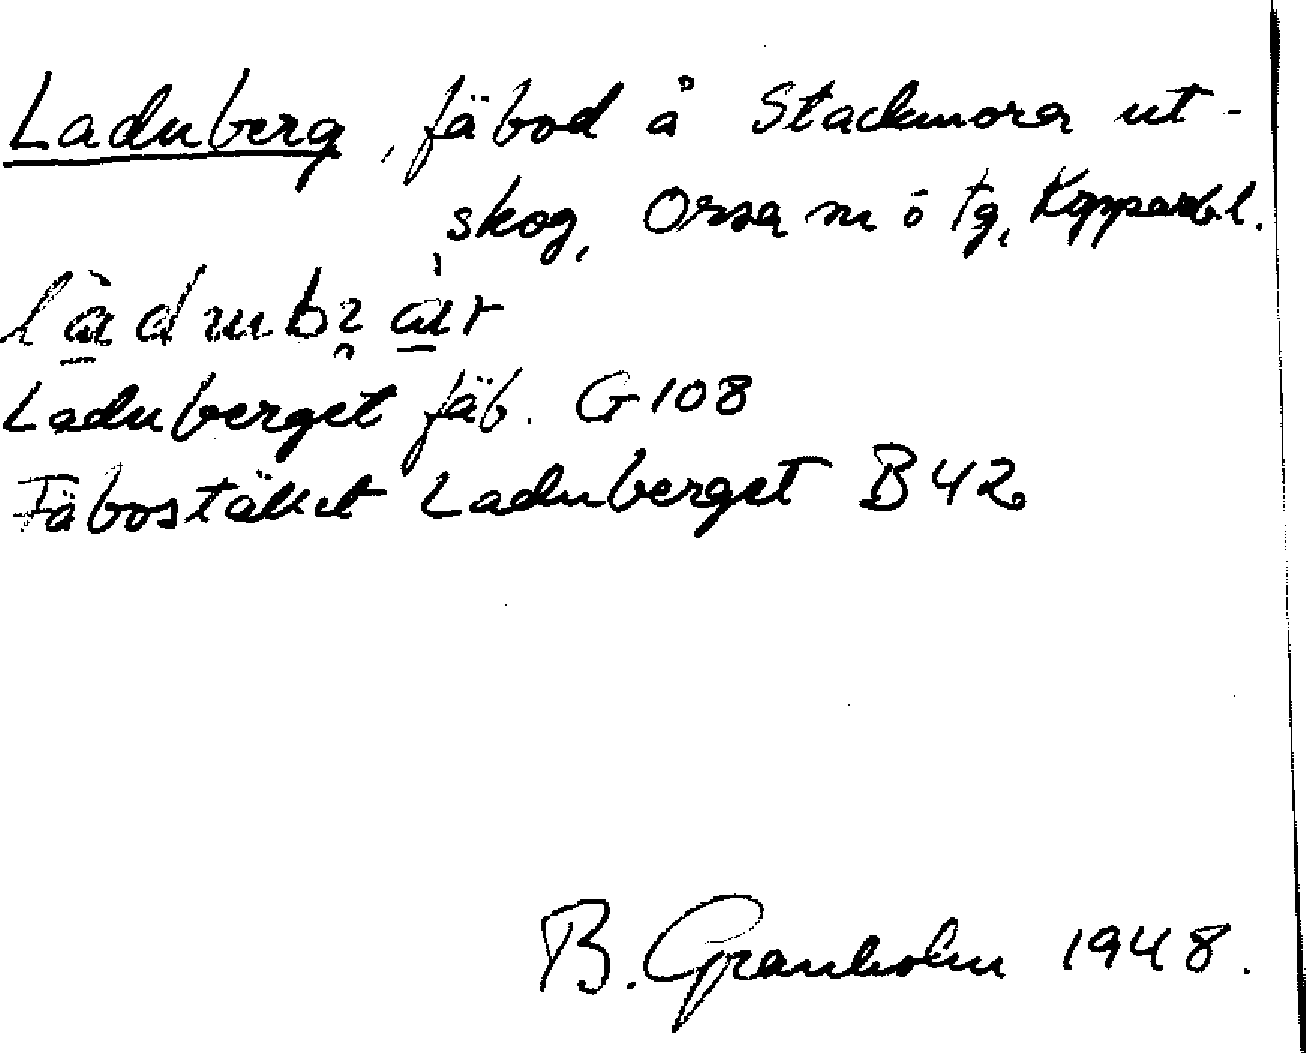 Laduberg, fäbod å Stackmora ut-
skog, Orsa sn o tg, Kopparbl.
Laduberget fäb. G 108
Fäbostället Laduberget B 42
B. Granholm 1948.